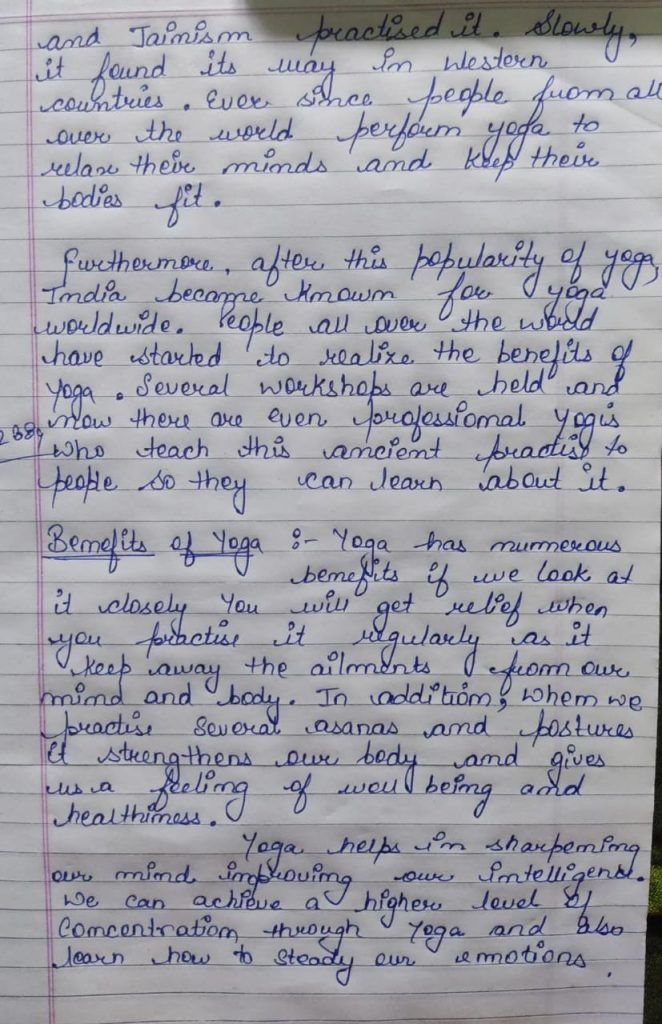 and Jainism practised it. Slowly,
it found its way in Western
countries. Ever since people from all
over the world perform yoga to
relax their minds and keep their
bodies fit.
Furthermore, after this popularity of yoga,
India became known for yoga
worldwide. People all over the world
have started to realize the benefits of
yoga. Several workshops are held and
now there are even professional yogis
who teach this ancient practise to
people so they can learn about it.
Benefits of Yoga :- Yoga has nummerous
benefits if we look at
it closely You will get relief when
you practise it regularly as it
keep away the ailments from our
mind and body. In addition, when we
practise several asanas and postures
it strengthens our body and gives
us a feeling of well being and
healthiness.
Yoga helps in sharpening
our mind improving our intelligence.
We can achieve a higher level of
Concentration through yoga and also
learn how to steady our emotions.